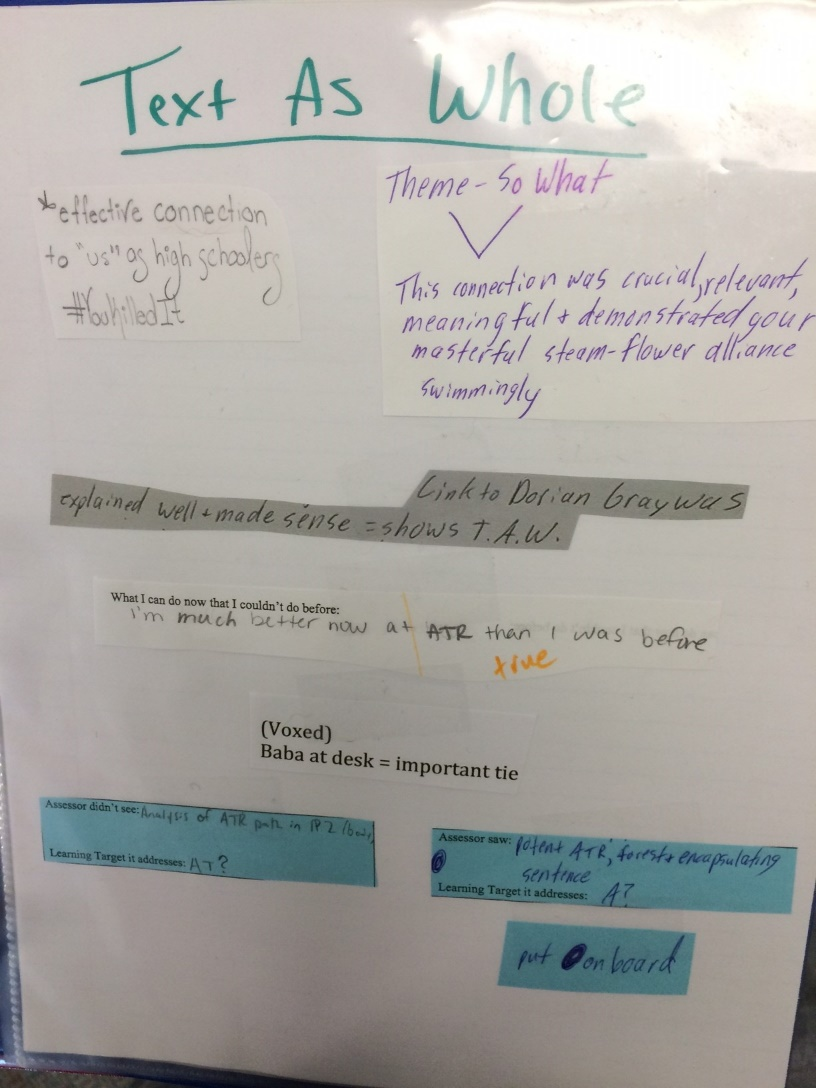 Text As Whole
*effective connection
to "us" as high schoolers
#YouKilledIt
Theme - So What
This connection was crucial, relevant,
meaningful + demonstrated your
masterful steam-flower alliance
swimmingly
Link to Dorian Gray was
explained well + made sense = shows T.A.W.
What I can do now that I couldn't do before:
I'm much better now at ATR than I was before
true
(Voxed)
Baba at desk = important tie
Assessor didn't see: Analysis of ATR in
Learning Target it addresses: AT?
Assessor saw: potent ATR, forest + encapsulating
sentence
Learning Target it addresses: A?
put on board